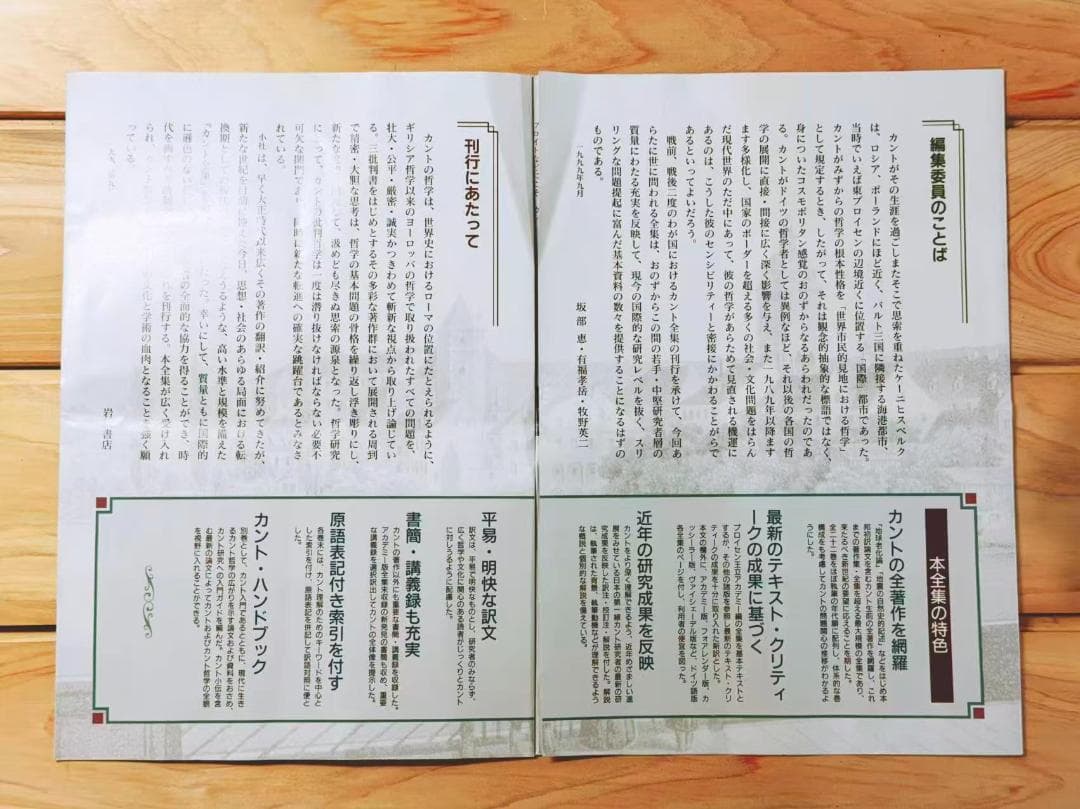 編集委員のことば
カントがその生涯を過ごしまたそこで思索を重ねたケーニヒスベルク
は、ロシア、ポーランドにほど近く、バルト三国に隣接する海港都市、
当時でいえば東プロイセンの辺境近くに位置する「国際」都市であった。
カントがみずからの哲学の根本性格を「世界市民的見地における哲学」
として規定するとき、したがって、それは観念的抽象的な標語ではなく、
身についたコスモポリタン感覚のおのずからなるあらわれだったのであ
る。カントがドイツの哲学者としては異例なほど、それ以後の各国の哲
学の展開に直接・間接に広く深く影響を与え、また一九八九年以降ます
ます多様化し、国家のボーダーを超える多くの社会・文化問題をはらん
だ現代世界のただ中にあって、彼の哲学があらためて見直される機運に
あるのは、こうした彼のセンシビリティーと密接にかかわることがらで
あるといってよいだろう。
戦前、戦後二度のわが国におけるカント全集の刊行を承けて、今回あ
らたに世に問われる全集は、おのずからこの間の若手・中堅研究者層の
質量にわたる充実を反映して、現今の国際的な研究レベルを抜く、スリ
リングな問題提起に富んだ基本資料の数々を提供することになるはずの
ものである。
一九九九年九月
坂部 恵・有福孝岳・牧野英二
刊行にあたって
カントの哲学は、世界史におけるローマの位置にたとえられるように、
ギリシア哲学以来のヨーロッパの哲学で取り扱われたすべての問題を、
壮大・公平・厳密・誠実かつきわめて斬新な視点から取り上げ論じてい
る。三批判書をはじめとするその多彩な著作群において展開される周到
で精密・大胆な思考は、哲学の基本問題の骨格を繰り返し浮き彫りにし、
新たな
汲めども尽きぬ思索の源泉となった。哲学研究
にとって、カントの批判哲学は一度は潜り抜けなければならない必要不
可欠な関門であり、同時に新たな転進への確実な跳躍台であるとみなさ
れている。
小社は、早く大正時代以来広くその著作の翻訳・紹介に努めてきたが、
新たな世紀を目前に
今日、思想・社会のあらゆる局面における転
換期
うるような、高い水準と規模を備えた
幸いにして、質量ともに国際的
に遜色のない
の全面的な協力を得ることができ、時
代を画す
を刊行する。本全集が広く受け入れ
られ
文化と学術の血肉となることを強く願
っている。
岩波書店
本全集の特色
カントの全著作を網羅
「地球老化論」「地震の自然史的記述」などをはじめ本
邦初訳論文を含むカント生前の全著作を網羅し、これ
までの著作集・全集を超える最大規模の全集であり、
来たるべき新世紀の要望に応えることを期した。
全二十二巻をほぼ執筆の年代順に配列し、体系的な巻
構成をも考慮してカントの問題関心の推移がわかるよ
うにした。
最新のテキスト・クリティ
ークの成果に基づく
プロイセン王立アカデミー編の全集を基本テキストと
するが、その他の諸版を参照し最新のテキスト・クリ
ティークの成果を十分に取り入れた新訳とした。
本文の欄外に、アカデミー版、フォアレンダー版、カ
ッシーラー版、ヴァイシェーデル版など、ドイツ語版
各全集のページを付し、利用者の便宜を図った。
近年の研究成果を反映
カントをより深く理解できるよう、近年めざましい進
展をみせている日本の第一線カント研究者の最新の研
究成果を反映した訳注・校訂注・解説を付した。解説
は、執筆された背景、執筆動機などが理解できるよう
な概説と個別的な解説を備えている。
平易・明快な訳文
訳文は、平易で明快なものとし、研究者のみならず、
広く哲学や文化に関心のある読者がじっくりとカント
に対しうるように配慮した。
書簡・講義録も充実
カントの著作以外にも重要な書簡・講義録を収録した。
アカデミー版全集未収録の新発見の書簡も収め、重要
な講義録を選択訳出してカントの全体像を提示した。
原語表記付き索引を付す
各巻末には、カント理解のためのキーワードを中心と
した索引を付け、原語表記を併記して訳語対照に便と
した。
カント・ハンドブック
別巻として、カント入門であるとともに、現代に生き
るカント哲学の広がりを示す論文および資料をおさめ、
カント研究への入門ガイドを編んだ。カント小伝を含
む最新の論文によってカントおよびカント哲学の全貌
を視野に入れることができる。